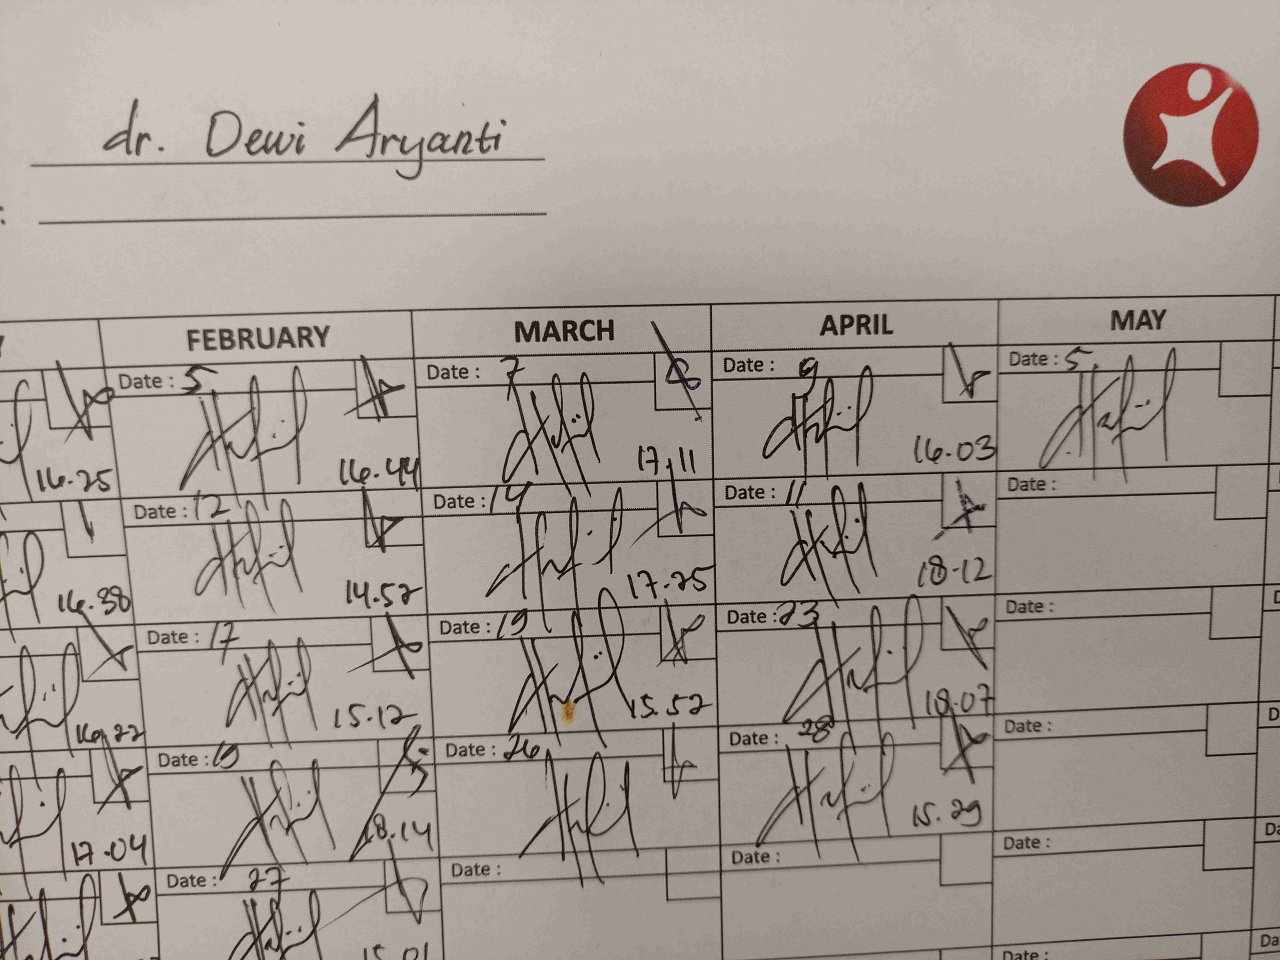 dr. Dewi Aryanti
:
Y FEBRUARY MARCH APRIL MAY
Date : 5 Date : 7 Date : 9 Date : 5
16.25 16.44 17.11 16.03
Date : 12 Date : 14 Date : 11 Date :
16.38 14.52 17.25 18.12
Date : 17 Date : 19 Date : 23 Date :
16.22 15.12 15.52 18.07
Date : 19 Date : 26 Date : 28 Date :
17.04 18.14 15.29
Date : 27 Date : Date : Date :
15.01
Date : Da